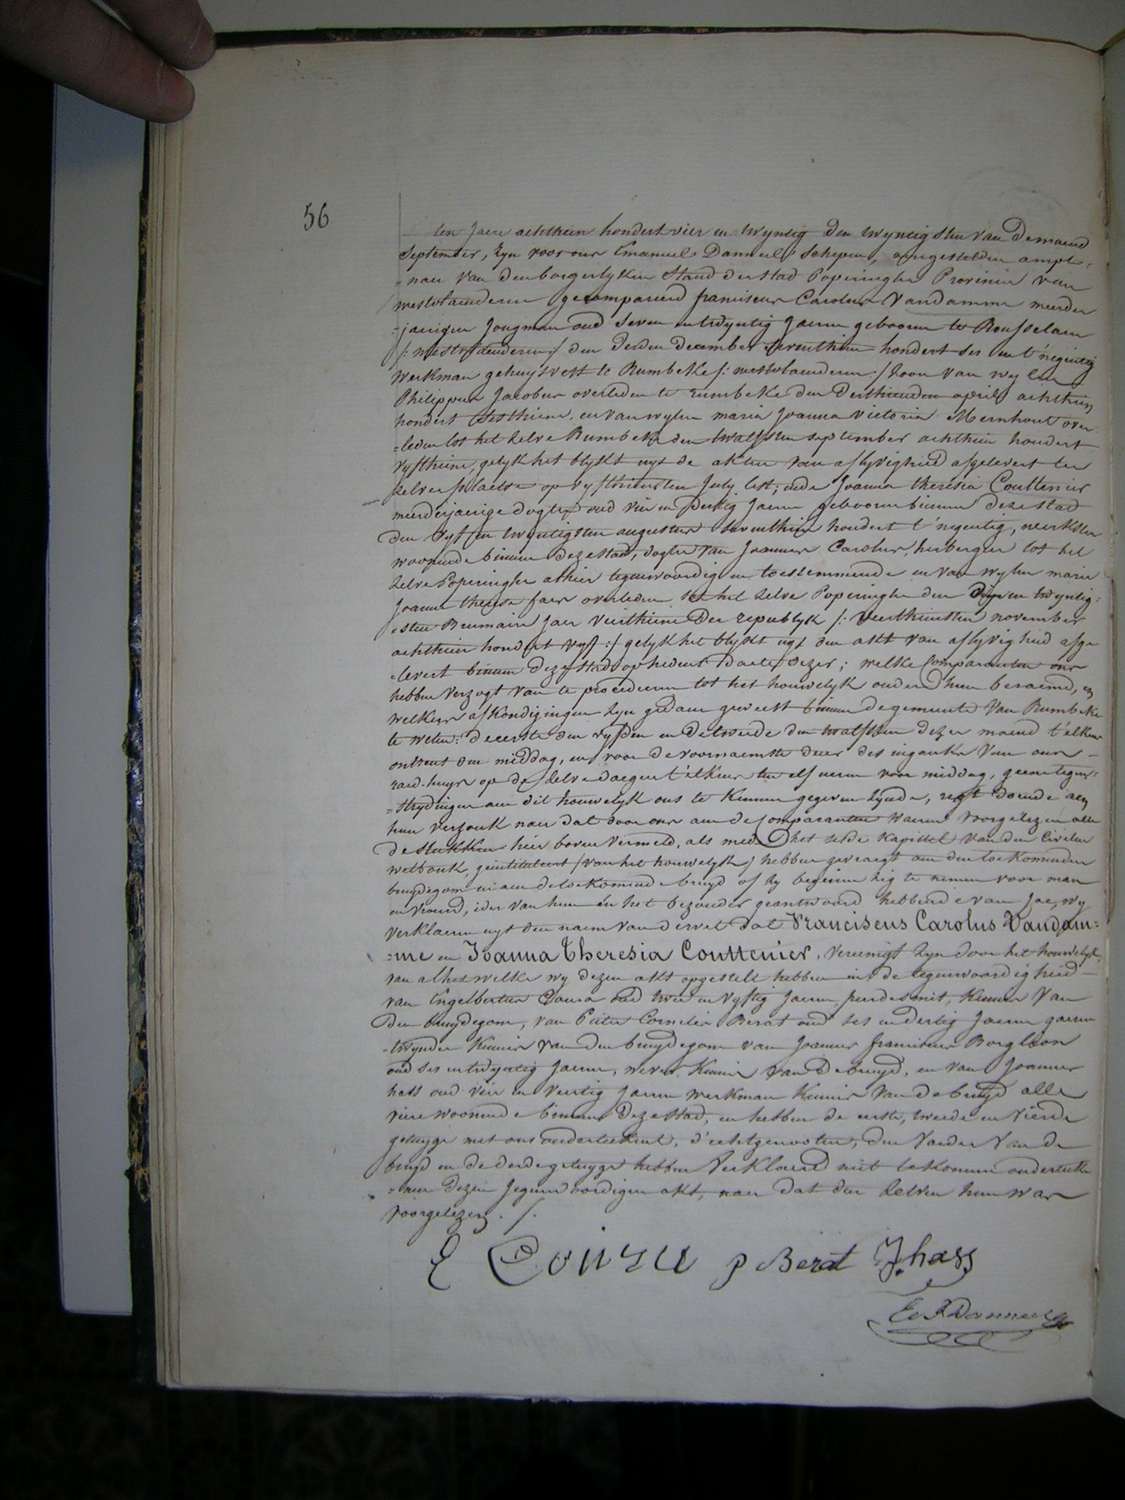 56
ten Jaere achthien hondert vier en twyntig den twyntigsten van de maend
September, zyn voor ons Emanuel Danneel schepen, aengestelden ampte-
-naer van den borgerlyken stand der stad Poperinghe Provincie van
westvlaenderen gecompareerd franciscus Carolus Vandamme meerder
-jaerigen Jongman oud seven en twyntig Jaeren geboren te Rousselaere
/: westvlaenderen :/ den derden december seventhien hondert ses en t'negintig
werkman gehuysvest te Rumbeke /: westvlaenderen :/ zoon van wylen
Philippus Jacobus overleden te rumbeke den derthienden april achthien
hondert sesthiene, en van wylen maria Joanna victoria Mernhout over-
-leden tot het zelve Rumbeke den twalfsten september achthien hondert
vyfthiene, gelyk het blykt uyt de akten van aflyvigheid afgelevert ten
zelver plaetse op vyfthiensten July lest; ende Joanna theresia Couttenier
meerderjaerige dogter oud vier en dertig Jaeren geboren binnen deze stad
den vyf en twyntigsten augustus seventhien hondert t'negentig, werkster
woonende binnen deze stad, dogter van Joannes Carolus, herbergier tot het
zelve Poperinghe alhier tegenwoordig en toestemmende en van wylen marie
Joanne therese faes overleden tot het zelve Poperinghe den dryen twyntig-
-sten Brumaire Jaer vierthiene der republyk /: veerthiensten november
achthien hondert vyf :/ gelyk het blykt uyt den akt van aflyvigheid afge-
-levert binnen deze stad op heden daete dezer; welke Comparanten ons
hebben verzogt van te procederen tot het houwelyk onder hun beraemd, en
welkers afkondigingen zyn gedaen geweest binnen de gemeente van Rumbeke
te weten: de eerste den vyfden en de tweede den twalfsten dezer maend t'elkens
ontrent den middag, en voor de voornaemste deur des ingank van ons
raed-huys op de zelve daegen t'elkens ten elf uren voor middag, geene tegen-
-strydingen aen dit houwelyk ons te kennen gegeven zynde, regt doende aen
hun verzoek naer dat door ons aen de Comparanten waeren voorgelezen alle
de stukken hier boven vermeld, als mede het sesde kapittel van den civielen
wetboek, geintituleert /van het houwelyk/ hebben gevraegt aen den toekomenden
bruydegom en aen de toekomende bruyd of zy begeiren zig te nemen voor man
en vrouw, ider van hun in het bezonder geantwoord hebbende van Jae, wy
verklaeren uyt den naem van de wet dat Franciscus Carolus Vandam-
-me en Joanna Theresia Couttenier, vereenigt zyn door het houwelyk,
van al het welke wy dezen akt opgestelt hebben in de tegenwoordigheid
van Engelbertus Couzu oud twee en vyftig Jaeren, kennis van
den bruydegom, van Pieter Cornelis Berat oud ses en dertig Jaeren gaeren-
-twynder kennis van den bruydegom van Joannes franciscus Borgloon
oud ses en twyntig Jaeren, wever kennis van de bruyd, en van Joannes
hass oud vier en veertig Jaeren werkman kennis van de bruyd alle
viere woonende binnen deze stad, en hebben de eerste, tweede en vierde
getuyge met ons onderteekent, d'echtgenooten, den vaeder van de
bruyd en de derde getuyge hebben verklaerd niet te konnen onderteeke-
-nen dezen tegenwoordigen akt, naer dat den zelven hun was
voorgelezen. /.
E Couzu p Berat J. hass
E. J. Danneel